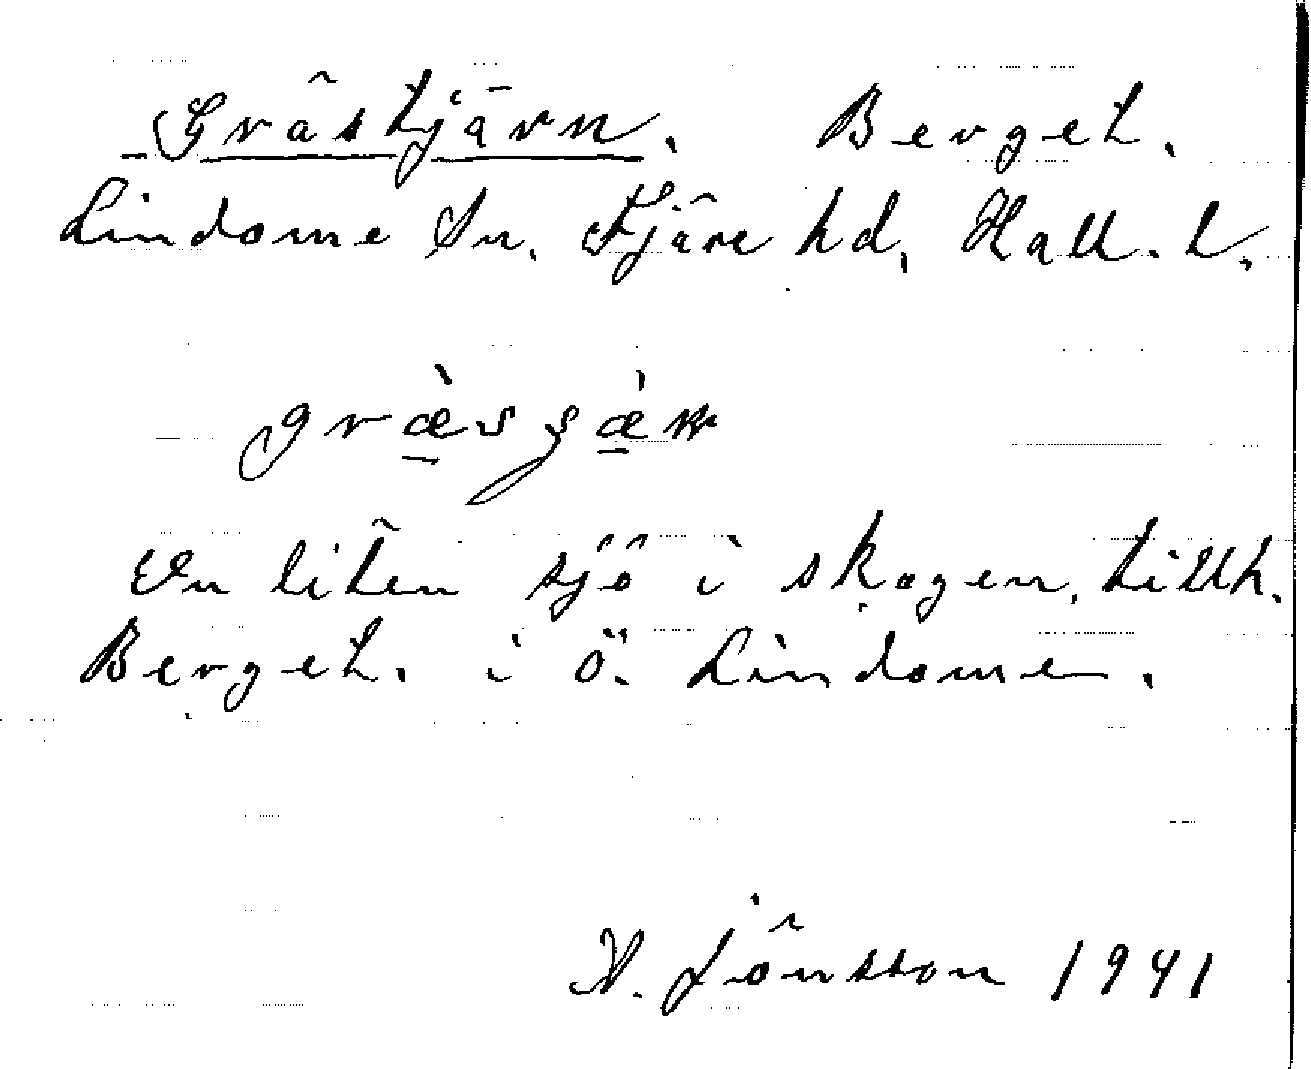 Grästjärn. Berget.
Lindome sn. Fjäre hd. Hall. l.
En liten sjö i skogen, tillh.
Berget. i Ö. Lindome.
N. Jönsson 1941